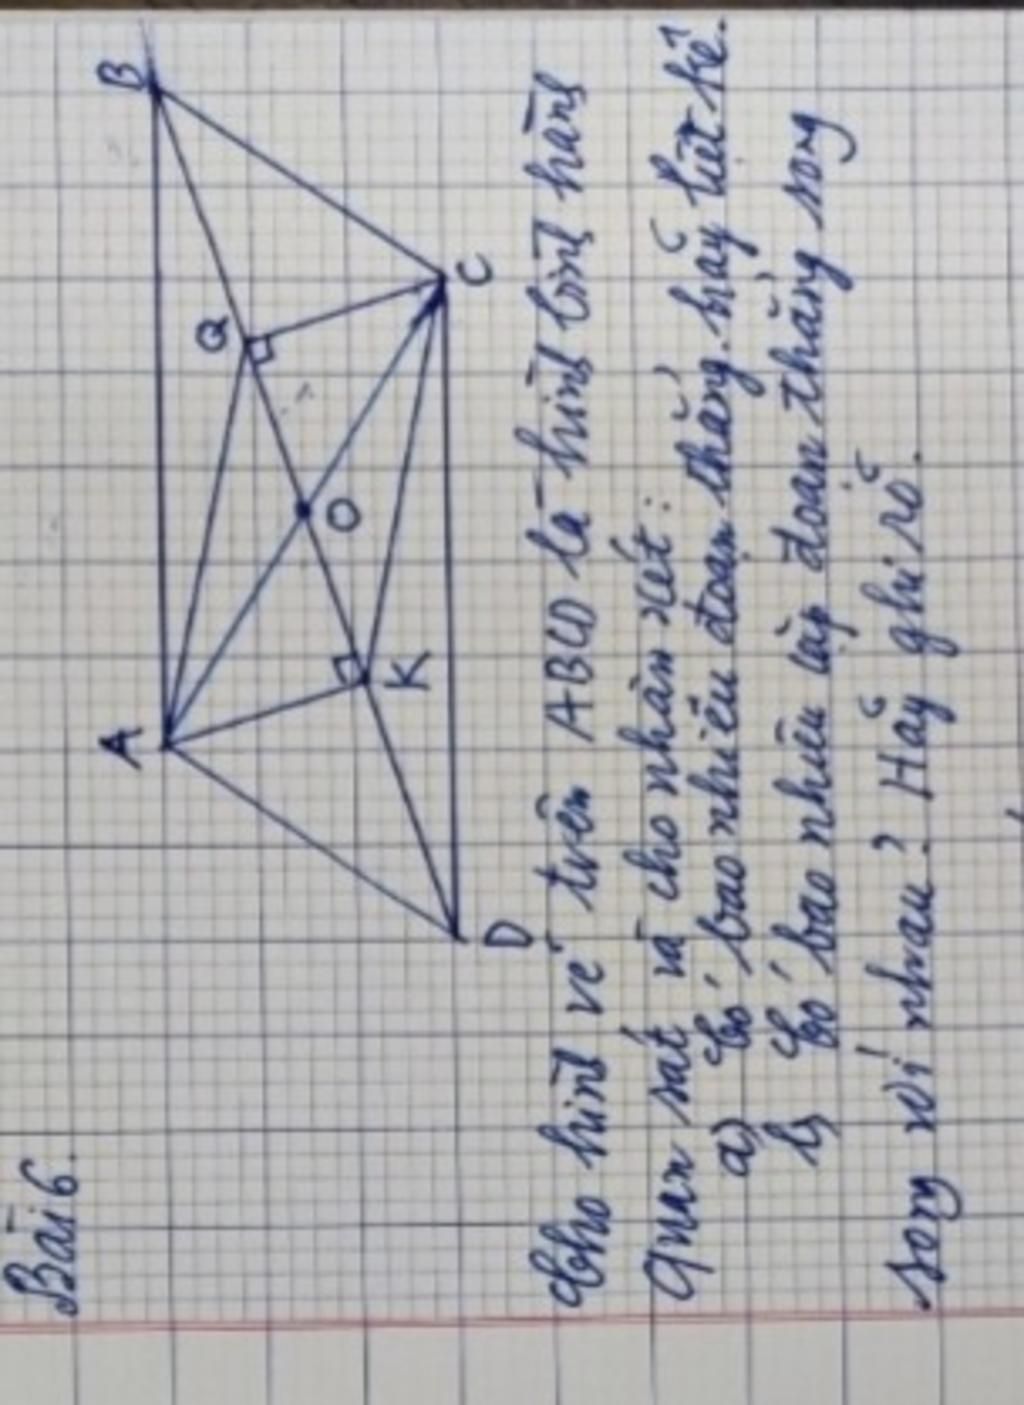 Bài 6.
A
B
Q
O
K
C
D
Cho hình vẽ trên ABCD là hình bình hành
Quan sát và cho nhận xét:
a) Có bao nhiêu đoạn thẳng. hãy liệt kê.
b) Có bao nhiêu cặp đoạn thẳng song
song với nhau? Hãy ghi rõ.